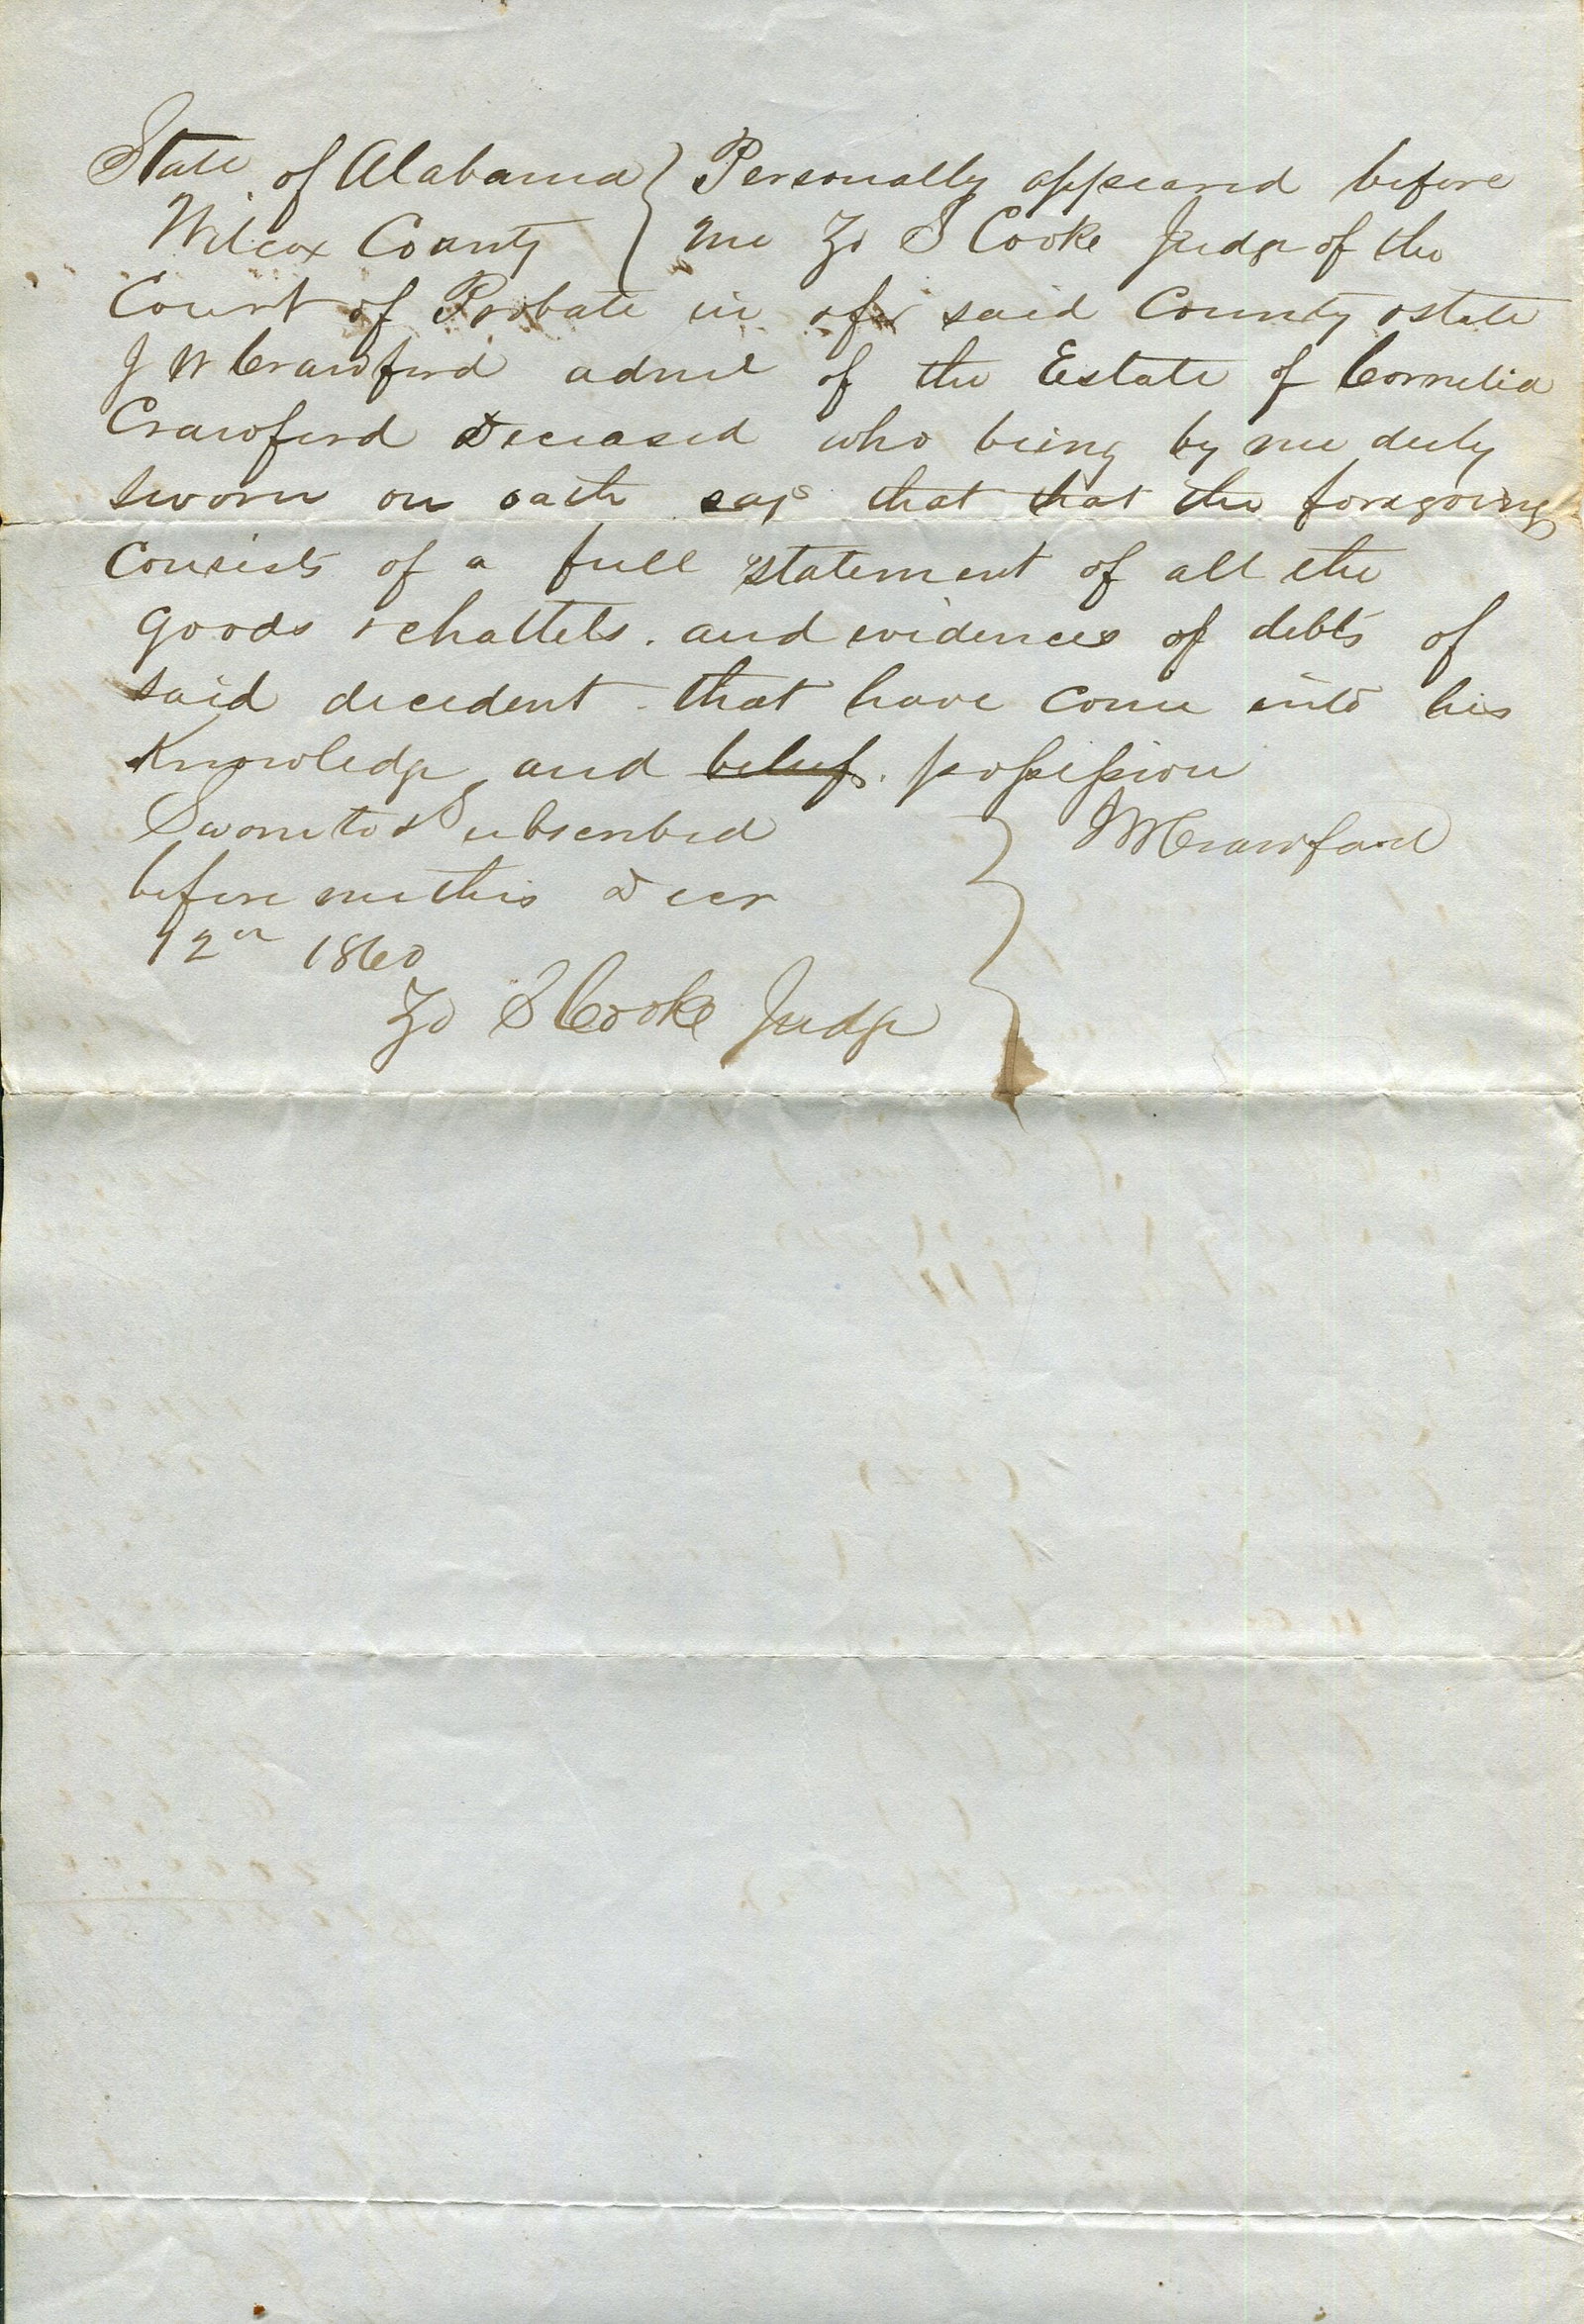 State of Alabama } Personally appeared before
Wilcox County } me Zo S Cooke Judge of the
Court of Probate in & for said County & State
J W Crawford admr of the Estate of Cornelia
Crawford Deceased who being by me duly
sworn on oath says that that the foregoing
consists of a full statement of all the
goods & chattels. and evidences of debts of
said decedent that have come into his
Knowledge and belief. possession
Sworn to & Subscribed } J W Crawford
before me this Decr
12th 1860
Zo S Cooke Judge